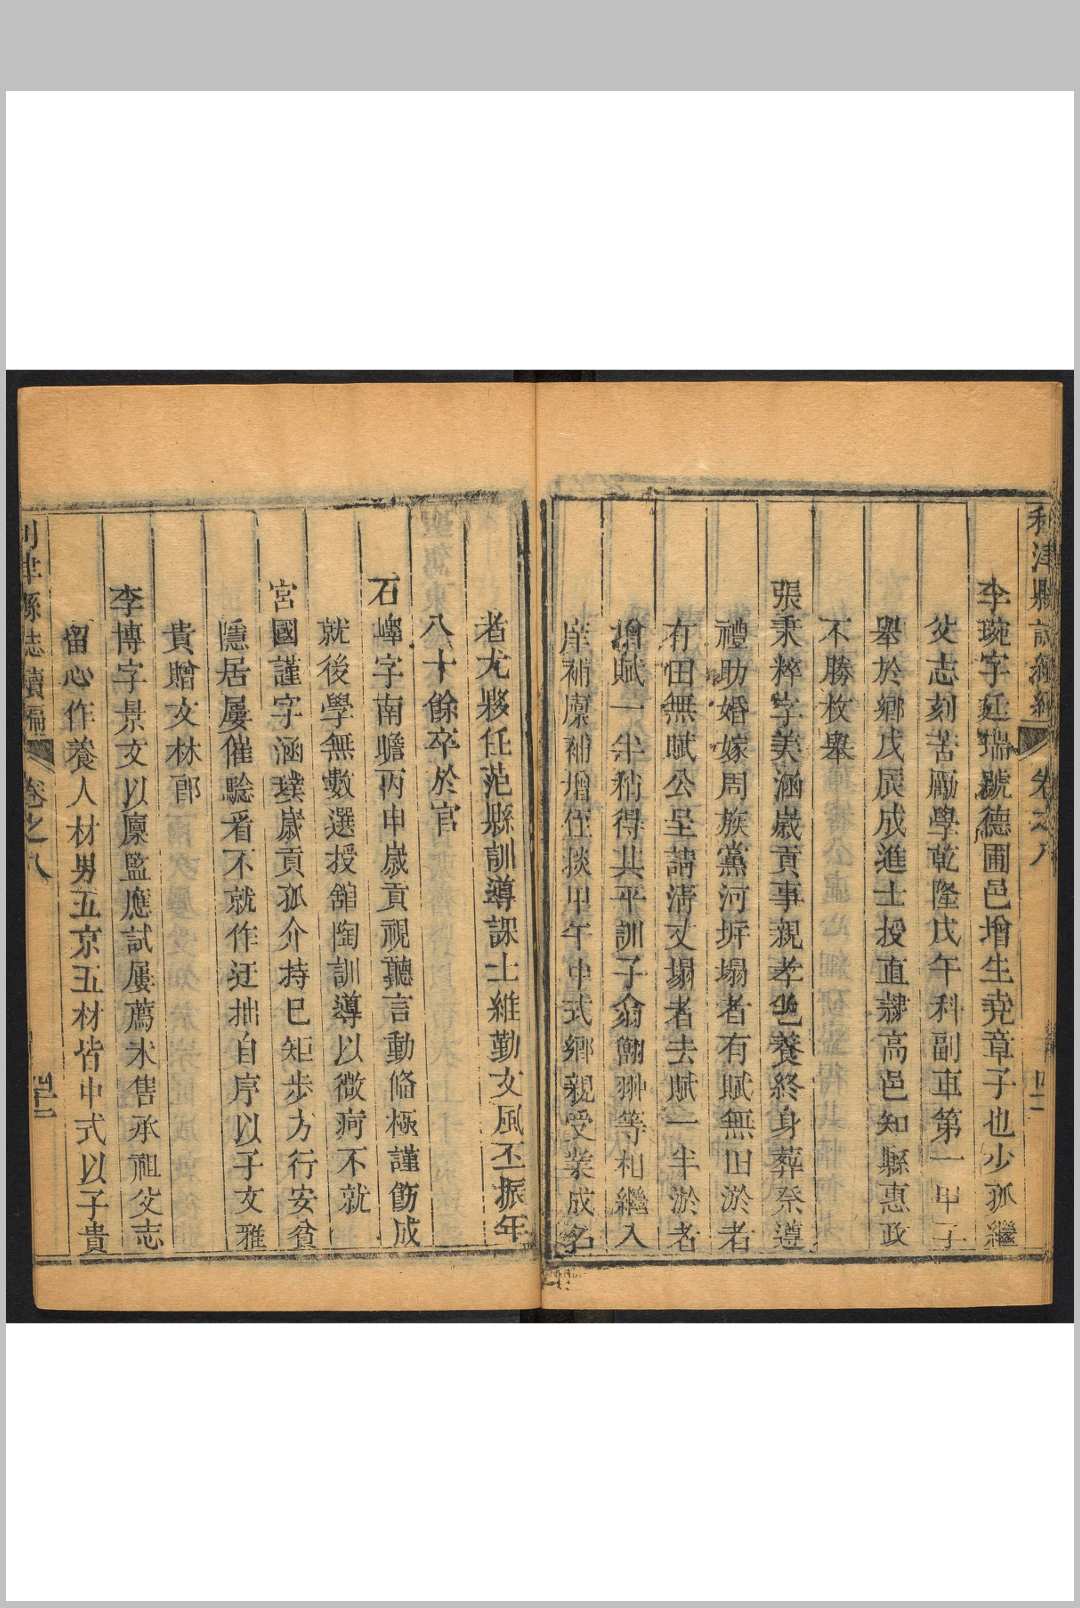 利津縣志續編 卷之八
李琬字廷瑞號德圃邑增生堯章子也少孤繼
父志刻苦勵學乾隆戊午科副車第一甲子
舉於鄉戊辰成進士授直隸高邑知縣惠政
不勝枚舉
張秉粹字美涵歲貢事親孝色養終身葬祭遵
禮助婚嫁周族黨河坍塌者有賦無田淤者
有田無賦公呈請清丈塌者去賦一半淤者
增賦一半稍得其平訓子翁翺翀等相繼入
庠補廩補增侄掞甲午中式鄉親受業成名
者尤夥任范縣訓導課士維勤文風丕振年
八十餘卒於官
石嶧字南瞻丙申歲貢視聽言動脩極謹飭成
就後學無數選授館陶訓導以微疴不就
宮國謹字涵璞歲貢孤介持已矩步方行安貧
隱居屢催驗看不就作迂拙自序以子文雅
貴贈文林郎
李博字景文以廩監應試屢薦未售承祖父志
留心作養人材男五京五材皆中式以子貴
利津縣志續編 卷之八